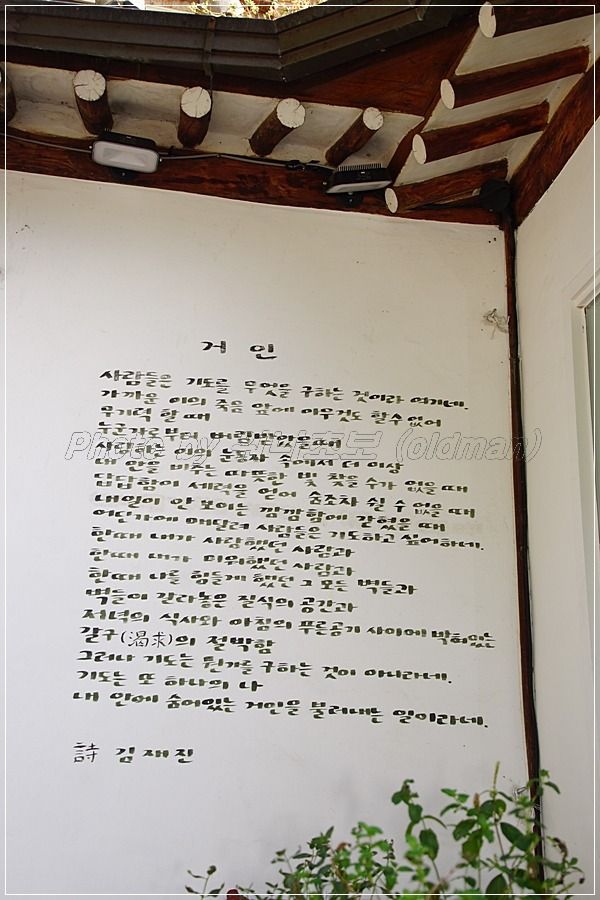 거인
사람들은 기도를 무엇을 구하는 것이라 여기네.
가까운 이의 죽음 앞에 아무것도 할 수 없어
무기력 할 때
누군가로부터 버림받았을때
사랑하는 이의 눈동자 속에서 더 이상
내 안을 비추는 따뜻한 빛 찾을 수가 없을 때
답답함이 세력을 얻어 숨조차 쉴 수 없을 때
내일이 안 보이는 깜깜함에 갇혔을 때
어딘가에 매달려 사람들은 기도하고 싶어하네.
한때 내가 사랑했던 사람과
한때 내가 미워했던 사람과
한때 나를 힘들게 했던 그 모든 벽들과
벽들이 갈라놓은 질식의 공간과
저녁의 식사와 아침의 푸른공기 사이에 박혀있는
갈구(渴求)의 절박함
그러나 기도는 뭔가를 구하는 것이 아니라네.
기도는 또 하나의 나
내 안에 숨어있는 거인을 불러내는 일이라네.
詩 김재진
Photo by (oldman)